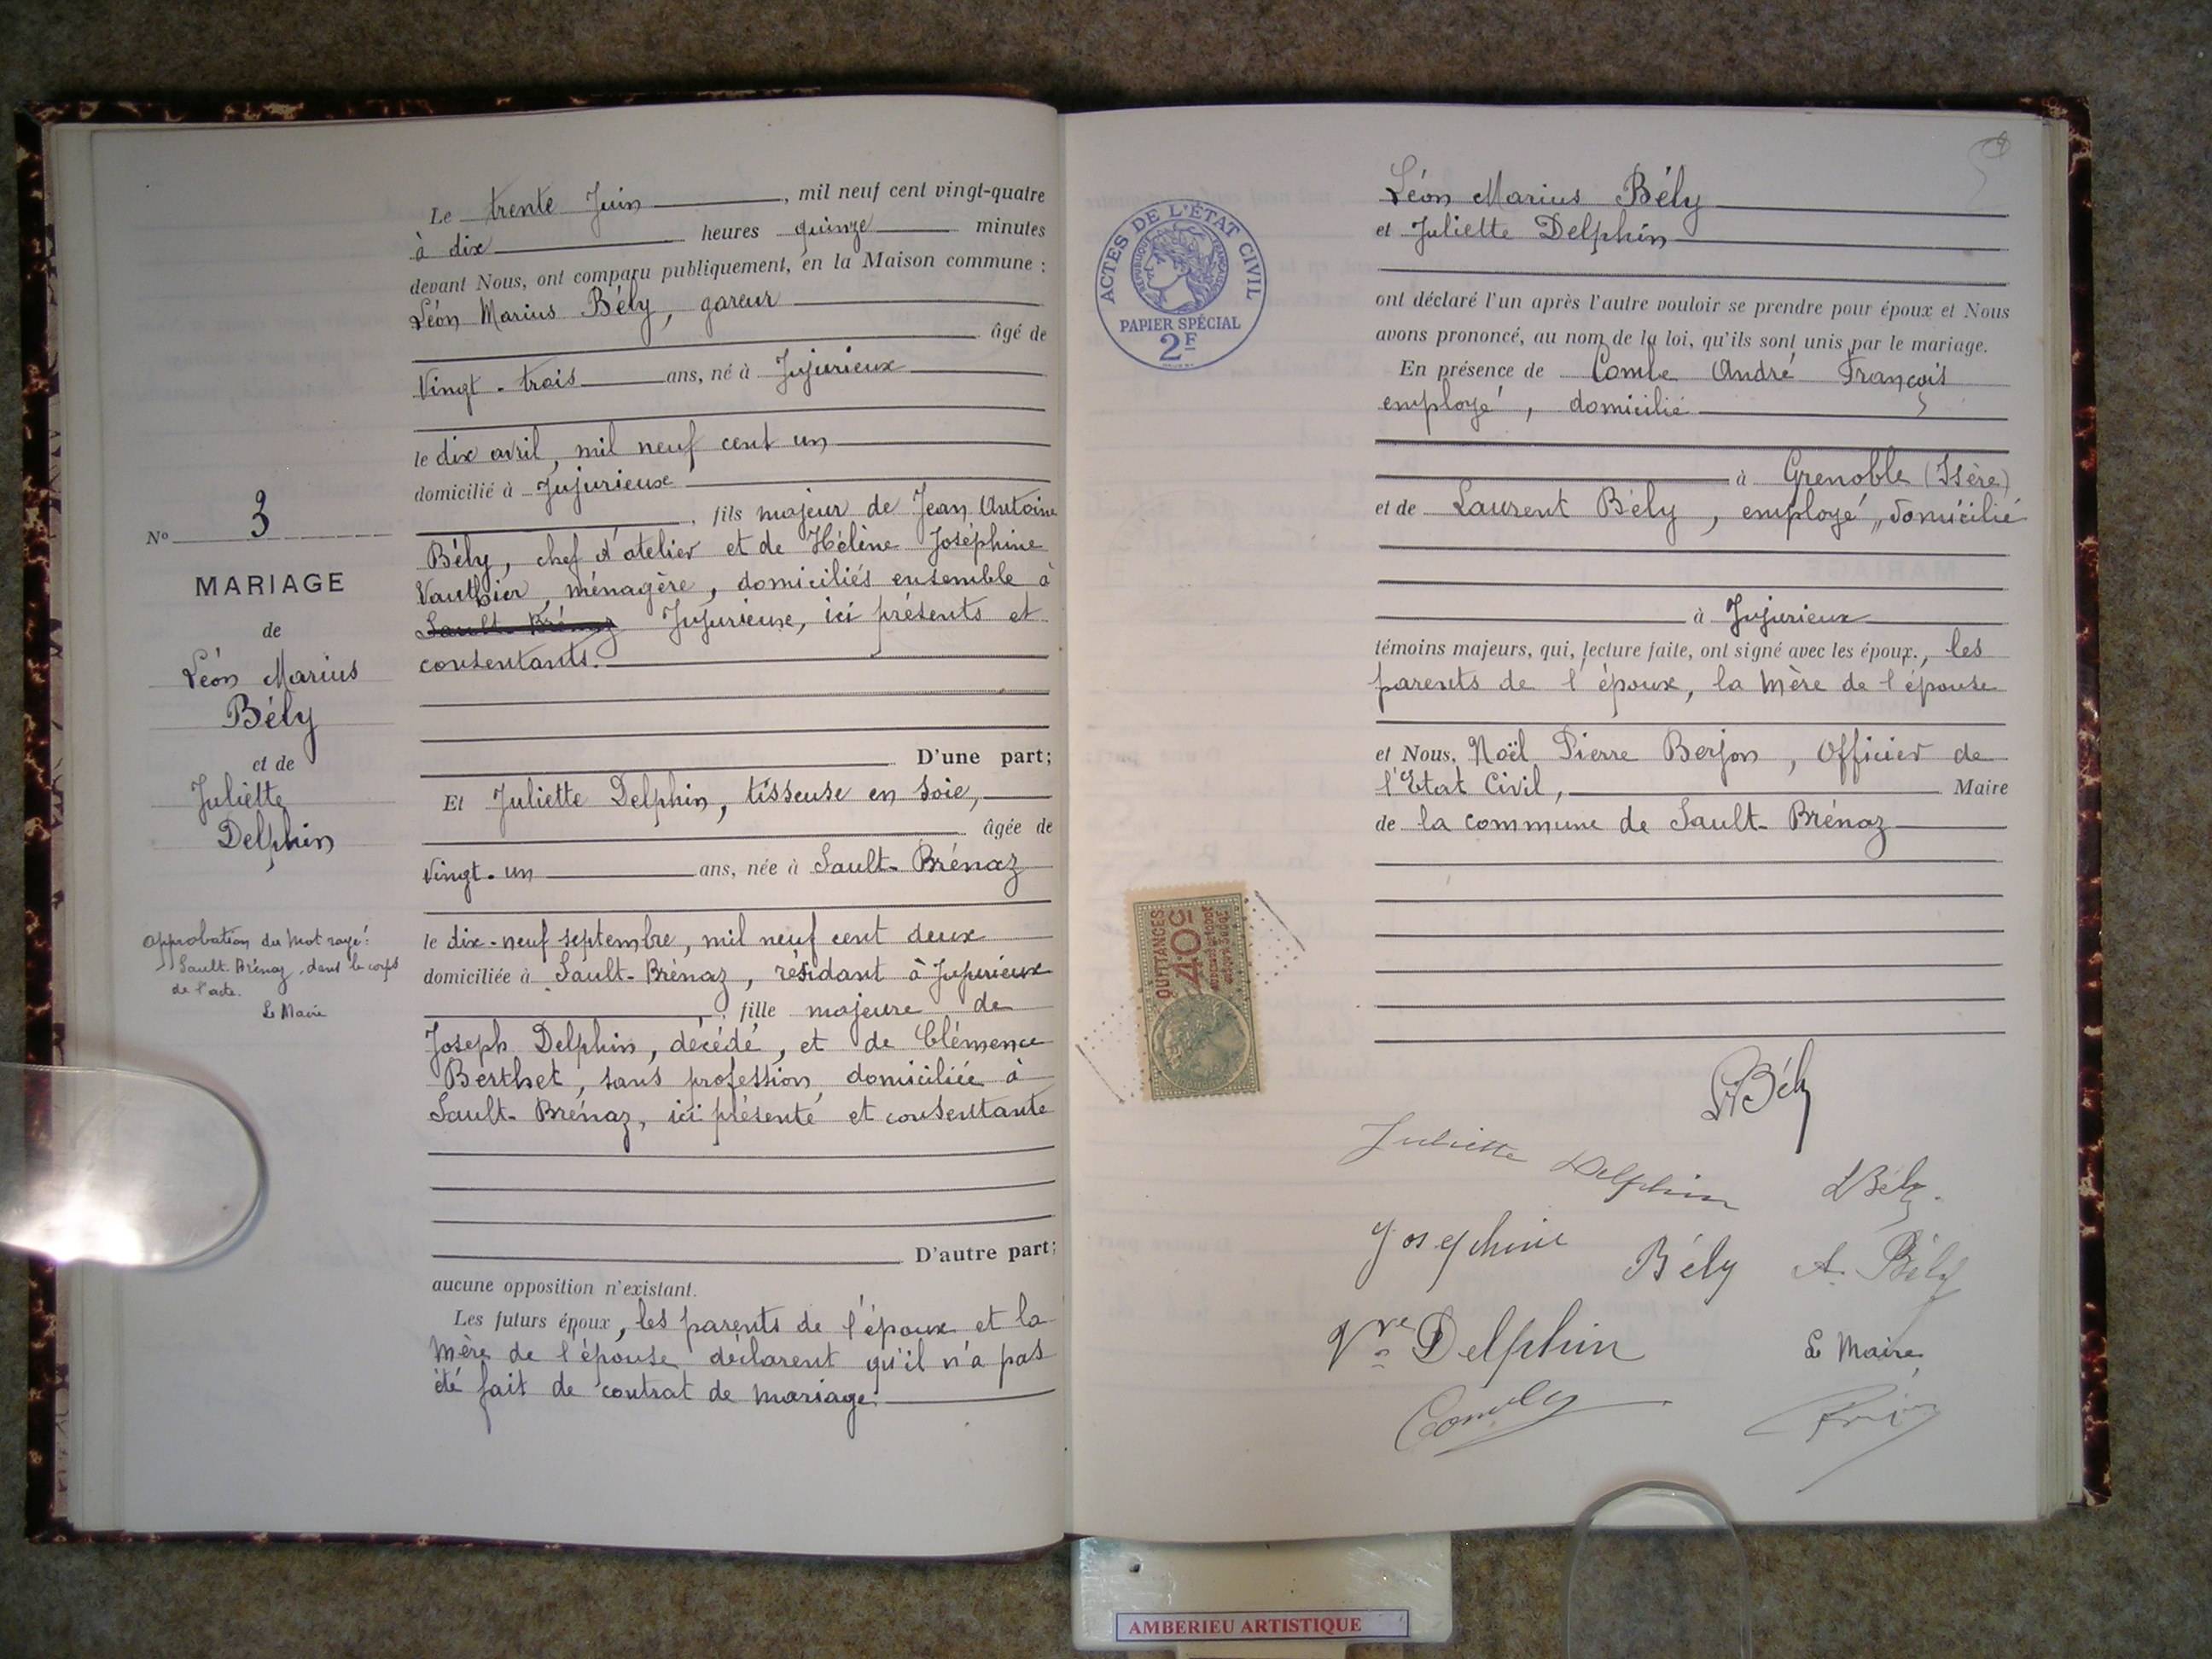 Le trente Juin, mil neuf cent vingt-quatre
à dix heures quinze minutes
devant Nous, ont comparu publiquement, en la Maison commune :
Léon Marius Bély, gareur
âgé de
Vingt-trois ans, né à Jujurieux
le dix avril, mil neuf cent un
domicilié à Jujurieux
, fils majeur de Jean Antoine
Bély, chef d'atelier et de Hélène Joséphine
Vauthier, ménagère, domiciliés ensemble à
Sault-Brénaz Jujurieux, ici présents et
consentants.
D'une part;
Et Juliette Delphin, tisseuse en soie,
âgée de
Vingt-un ans, née à Sault-Brénaz
le dix-neuf septembre, mil neuf cent deux
domiciliée à Sault-Brénaz, résidant à Jujurieux
, fille majeure de
Joseph Delphin, décédé, et de Clémence
Berthet, sans profession, domiciliée à
Sault-Brénaz, ici présente et consentante
D'autre part;
aucune opposition n'existant.
Les futurs époux, les parents de l'époux et la
Mère de l'épouse déclarent qu'il n'a pas
été fait de contrat de mariage.
No 3
MARIAGE
de
Léon Marius
Bély
et de
Juliette
Delphin
Approbation du mot rayé:
Sault-Brénaz, dans le corps
de l'acte.
Le Maire
ACTES DE L'ÉTAT CIVIL
RÉPUBLIQUE FRANÇAISE
PAPIER SPÉCIAL
2F
QUITTANCES
40c
Léon Marius Bély
et Juliette Delphin
ont déclaré l'un après l'autre vouloir se prendre pour époux et Nous
avons prononcé, au nom de la loi, qu'ils sont unis par le mariage.
En présence de Combe André François
employé, domicilié
à Grenoble (Isère)
et de Laurent Bély, employé, domicilié
à Jujurieux
témoins majeurs, qui, lecture faite, ont signé avec les époux., les
parents de l'époux, la Mère de l'épouse
et Nous, Noël Pierre Berjon, Officier de
l'Etat Civil, Maire
de la commune de Sault-Brénaz
Bély
Juliette Delphin
LBély
Josephine Bély
A. Bély
Vve Delphin
Le Maire
AMBERIEU ARTISTIQUE